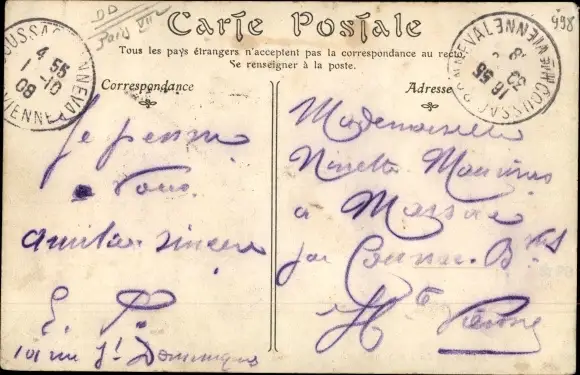 Carte Postale
Tous les pays étrangers n'acceptent pas la correspondance au recto
Se renseigner à la poste.
Correspondance
Adresse
998
COUSSAC BONNEVAL
4 55
1-10
08
VIENNE
COUSSAC BONNEVAL
HTE VIENNE
16 55
Je pense
à Vous
Amitiés sincère
E. P.
101 rue St Dominique
Mademoiselle
Ninette
à
par Coussac-B
Hte Vienne